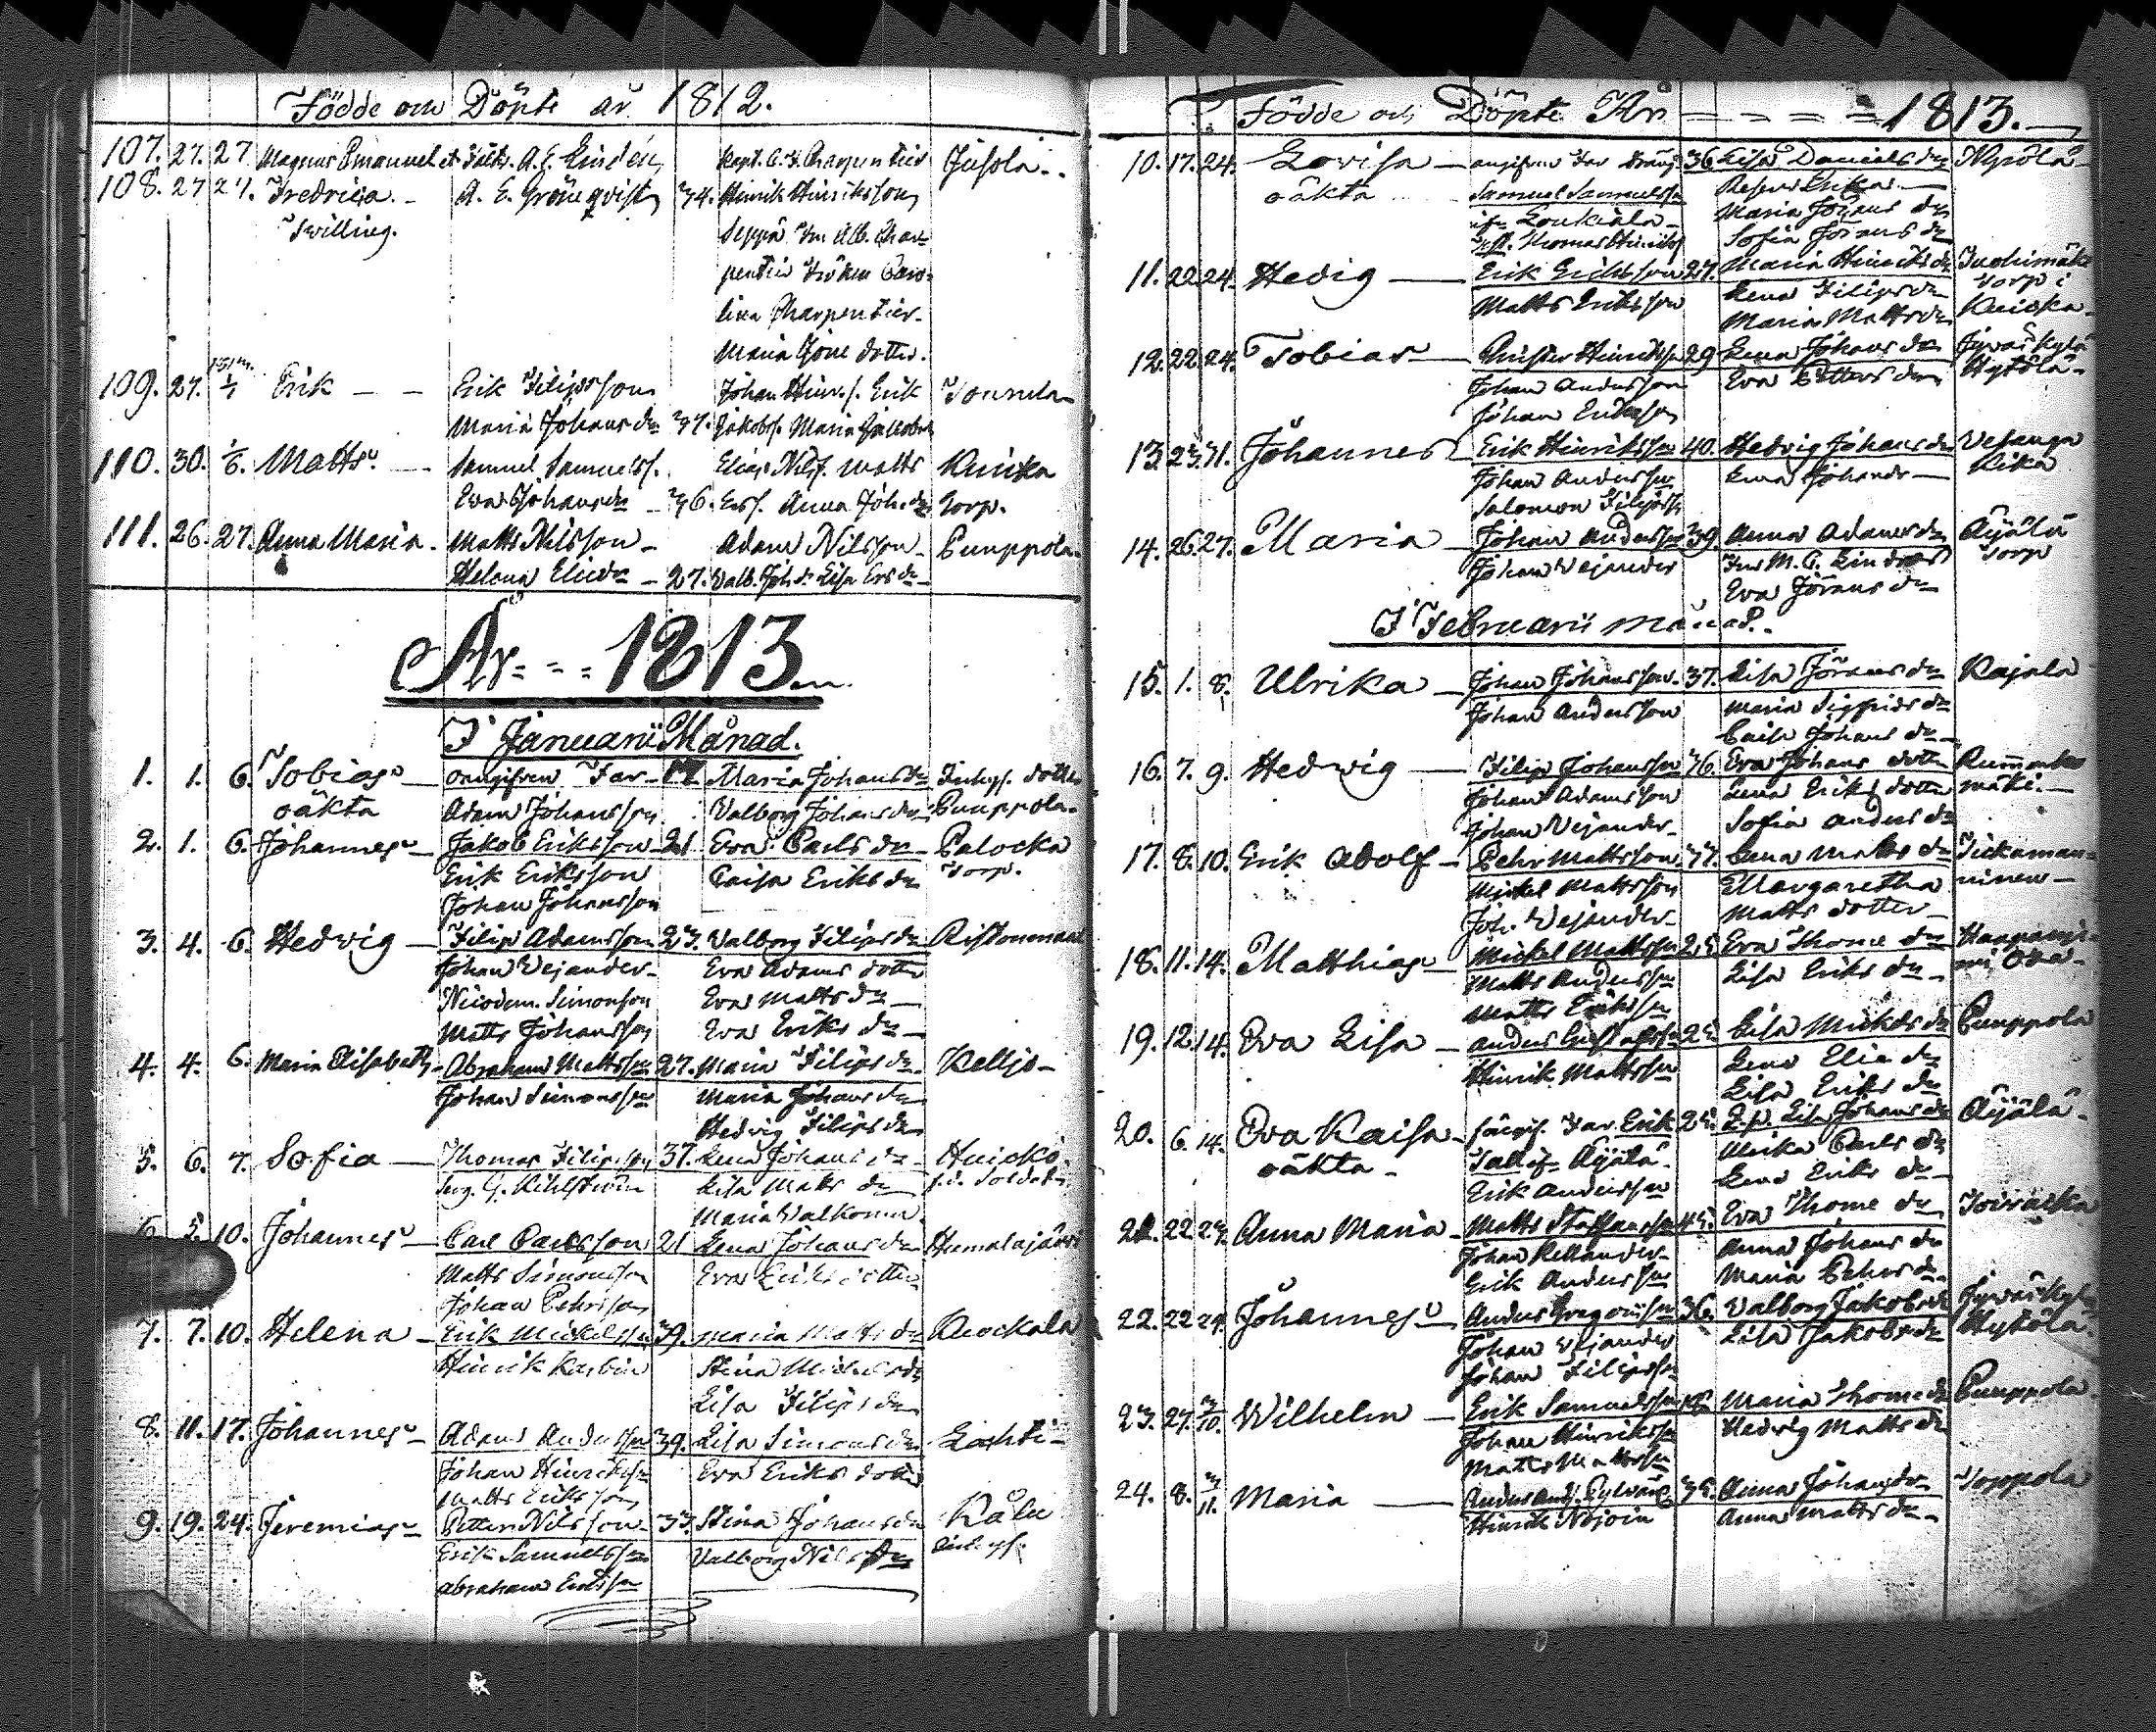 Födde och Döpte år 1812.
107. 27. 27 Magnus Emanuel et Fältk. A. E. Lindén, Kapt. C. F. Charpentier Jusola..
108. 27 27. Fredrica. - A. E. Grönqvist 34. Hinrik Hinriksson
Twilling. Seppä Fru Ulb. Char-
pentier Fröken Caro-
lina Charpentier.
Maria Göne dotter.
109. 27. 1/1 Erik - - Erik Filipsson Johan Hinr.s. Erik Tourula
Maria Johans dr 37. Jakobs. Maria Jakobs
110. 30. 1/6. Matts. - Samuel Samuelss. Elias Nilss. Matts Kuicka
Eva Johansdr - 36. Erss. Anna Joh.dr Torp.
111. 26. 27. Anna Maria. Matts Nilsson - Adam Nilsson Puuppola.
Helena Eliedr - 27. Valb. Joh.dr Lisa Ersdr -
År - - - 1813.
I Januarii Månad.
1. 1. 6. Tobias - oangifven Far - 17 Maria Johansdr Inhys. dotter
oäkta Adam Johansson. Valborg Johansdr Puuppola.
2. 1. 6. Johannes - Jakob Eriksson 21 Eva Carls dr - Palocka
Erik Eriksson Caisa Eriks dr Torp.
Johan Johansson
3. 4. 6. Hedvig - Filip Adamsson 23. Valborg Filipsdr Ristonmaa
Johan Vejander - Eva Adams dotter
Nicodem. Simonson Eva Matts dr -
Matts Johansson Eva Eriks dr -
4. 4. 6. Maria Elisabeth - Abraham Mattsson 27. Maria Filipsdr Keljo -
Johan Simonsson Maria Johansdr
Hedvig Filipsdr
5. 6. 7. Sofia - Thomas Filipsson 37. Lena Johansdr - Huicko.
Lisa Matts dr f.d. Soldat
Maria Valkonin.
5. 10. Johannes - Carl Carlsson 21 Lena Johansdr Humalajärvi
Matts Simonsson Eva Eriks dotter
Johan Pehrsson
7. 7. 10. Helena - Erik Mickelsson 39. Maria Matts dr Kuockala
Hinrik Karbin Stina Mickelsdr
Lisa Filipsdr
8. 11. 17. Johannes - Adam Andersson 39. Lisa Simonsdr Lachti -
Johan Hinriksson Eva Eriks dotter
Matts Eriksson
9. 19. 24. Jeremias - Petter Nilsson - 33. Stina Johansdr
Erik Samuelsson Valborg Nilsdr inhys.
Abraham Eriksson
Födde och Döpte År - - - - 1813.
10. 17. 24. Lovisa - angifven Far Dräng 36 Lisa Daniels dr Nyrölä
oäkta Samuel Samuelsson
Loukiala - Maria Johans dr
Thomas Hinriks Sofia Jörans dr
11. 22. 24. Hedvig - Erik Eriksson 27. Maria Hinriksdr
Matts Eriksson Lena Filipsdr Torp i
Maria Mattsdr Kuicka
12. 22. 24. Tobias - Christer Hinriksson 29 Lena Johansdr Jyväskylä
Johan Andersson Eva Petters dr Hytölä.
Johan Eriksson
13. 23. 31. Johannes Erik Hinriksson 40. Hedvig Johansdr Vesanga
Johan Andersson Lena Johansdr - Rika
Salomon Filipsson
14. 26. 27. Maria - Johan Andersson 39. Anna Adamsdr Äijälä
Johan Vejander Fru M. C. Lindros Torp
Eva Jörans dr
I Februarii månad.
15. 1. 8. Ulrika - Johan Johansson. 37. Lisa Jörans dr Kajala
Johan Andersson Maria Sigfrids dr
Caisa Johans dr
16. 7. 9. Hedvig - Filip Johansson 36. Eva Johans dotter
Johan Adamsson Lena Eriks dotter mäki. -
Johan Vejander - Sofia Anders dr
17. 8. 10. Erik Adolf - Pehr Mattsson 37. Lena Matts dr Tickaman-
Mickel Mattsson Margaretha ninen -
Joh. Vejander - Matts dotter -
18. 11. 14. Matthias - Mickel Mattsson 25. Eva Thome dr
Matts Andersson Lisa Eriks dr -
Matts Eriksson
19. 12. 14. Eva Lisa - Anders Gustafsson 25. Lisa Mickelsdr Puuppola
Hinrik Mattsson Lena Elie dr
Lisa Eriks dr
20. 6. 14. Eva Kaisa - Far Erik 25. Lisa Johansdr Äijälä -
oäkta - Äijälä. Ulrika Carls dr
Erik Andersson Lena Eriks dr -
21. 22 24. Anna Maria - Matts Staffansson 45. Eva Thome dr Toivacka
Johan Kellander - Anna Johans dr
Erik Andersson Maria Pehrsdr
22. 22 24. Johannes - Anders Gregorisson 36. Valborg Jakobsdr Jyväskylä
Johan Vejander Lisa Jakobsdr Hytölä.
Johan Filipsson
23. 27. 3/10. Wilhelm - Erik Samuelsson Maria Thomedr Puuppola.
Johan Hinriksson Hedvig Matts dr
Matts Mattsson
24. 8. 3/11. Maria - 35. Anna Johansdr Toppola
Hinrik Nojoin Anna Mattsdr -